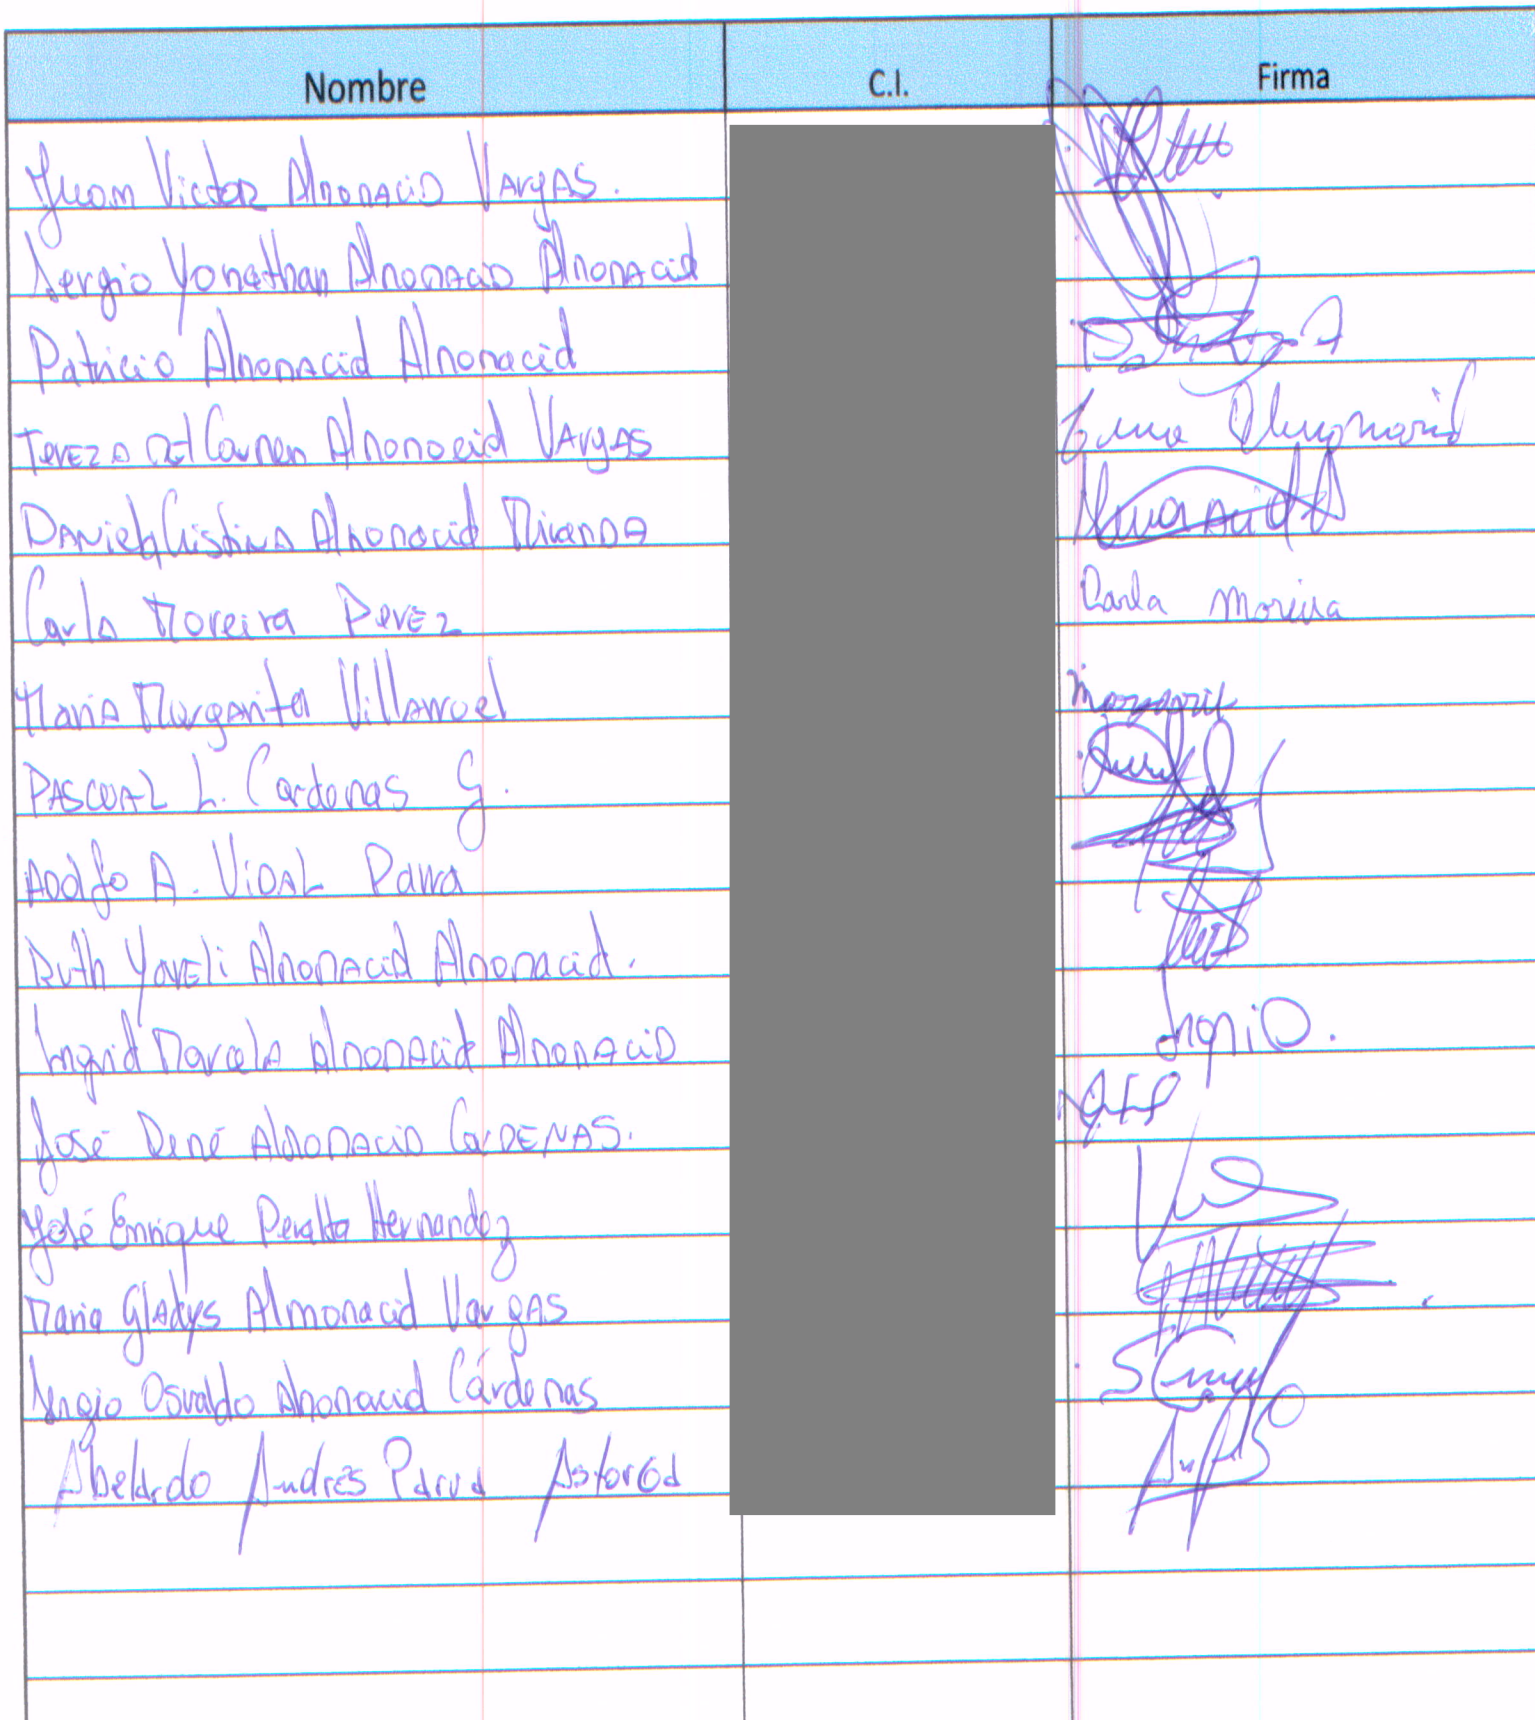 Nombre C.I. Firma
Juan Victor Almonacid Vargas.
Sergio Yonathan Almonacid Almonacid
Patricio Almonacid Almonacid
Tereza del Carmen Almonacid Vargas
Daniela Cristina Almonacid Miranda
Carla Moreira Perez Carla Moreira
Maria Margarita Villarroel Margarit
Pascual L. Cardenas G.
Adolfo A. Vidal Parra
Ruth Yoveli Almonacid Almonacid.
Ingrid Marcela Almonacid Almonacid Ingrid.
José René Almonacid Cardenas.
José Enrique Peralta Hernandez
Maria Gladys Almonacid Vargas
Sergio Osvaldo Almonacid Cárdenas
Abelardo Andrés Parra Astorga